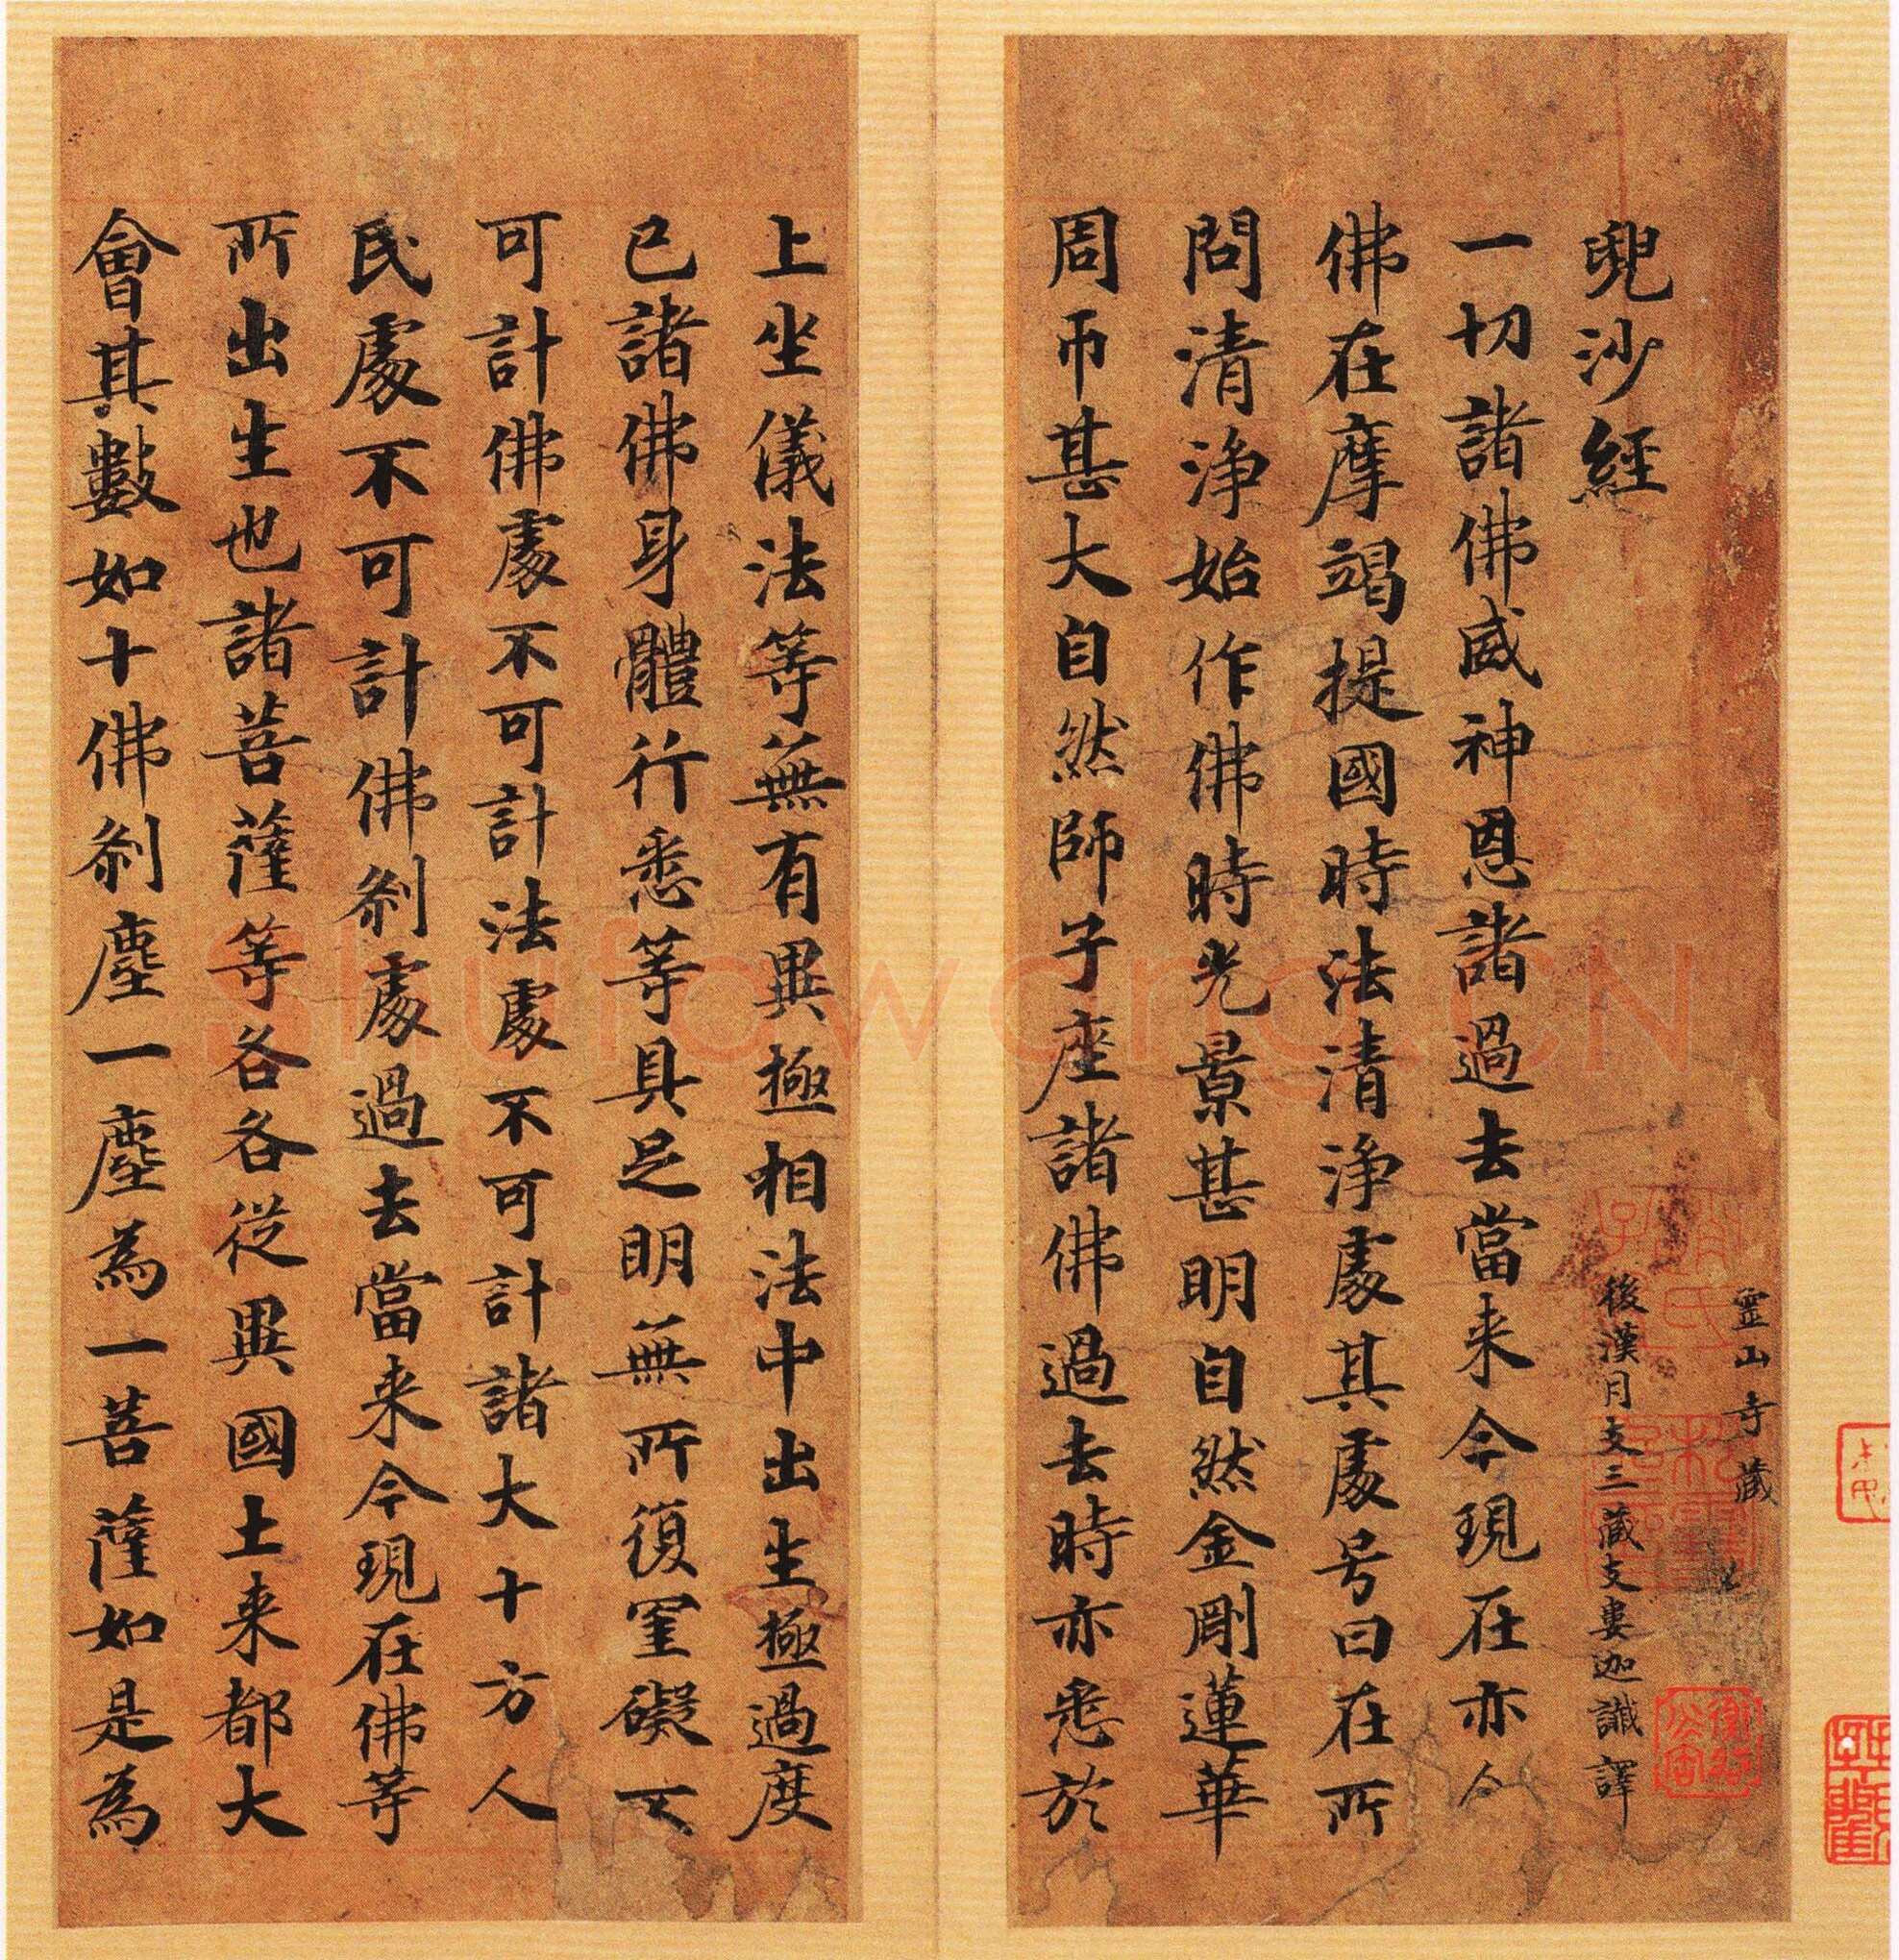 靈山寺藏
兜沙經
後漢月支三藏支婁迦讖譯
一切諸佛威神恩諸過去當来今現在亦尒
佛在摩竭提國時法清淨處其處号曰在所
問清淨始作佛時光景甚明自然金剛蓮華
周帀甚大自然師子座諸佛過去時亦悉於
上坐儀法等無有異極相法中出生極過度
已諸佛身體行悉等具足明無所復罣礙不
可計佛處不可計法處不可計諸大十方人
民處不可計佛剎處過去當来今現在佛等
所出生也諸菩薩等各各從異國土来都大
會其數如十佛剎塵一塵為一菩薩如是為
shufawang.CN